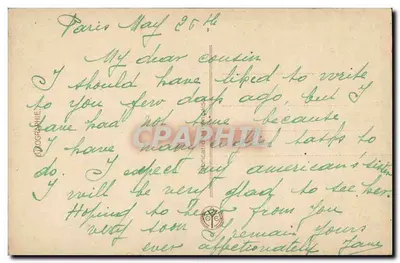 Paris May 25th
My dear cousin
I should have liked to write
to you few days ago, but I
have had not time because
I have many tasks to
do. I expect my american's sister
I will be very glad to see her.
Hoping to hear from you
very soon I remain yours
ever affectionately Jane
CARPHTIL